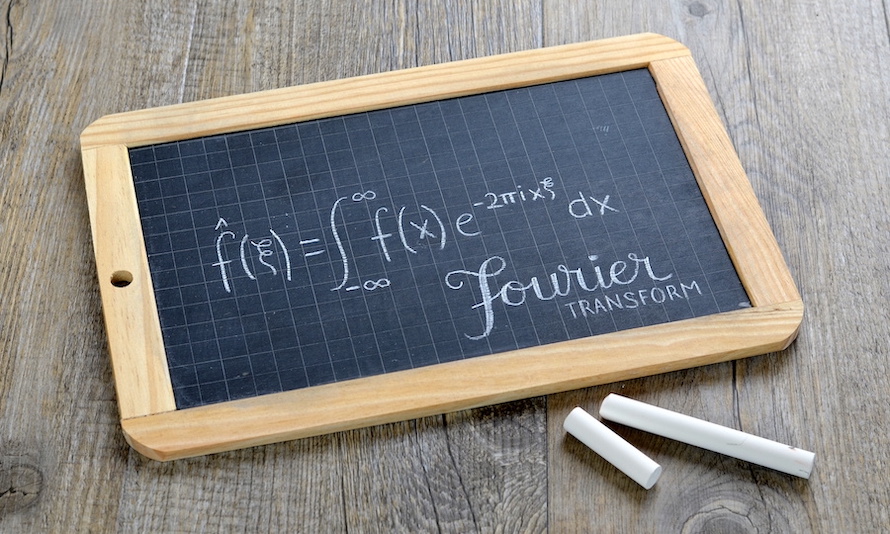 f̂(ξ) = ∫_{-∞}^{∞} f(x) e^{-2πixξ} dx
Fourier
TRANSFORM